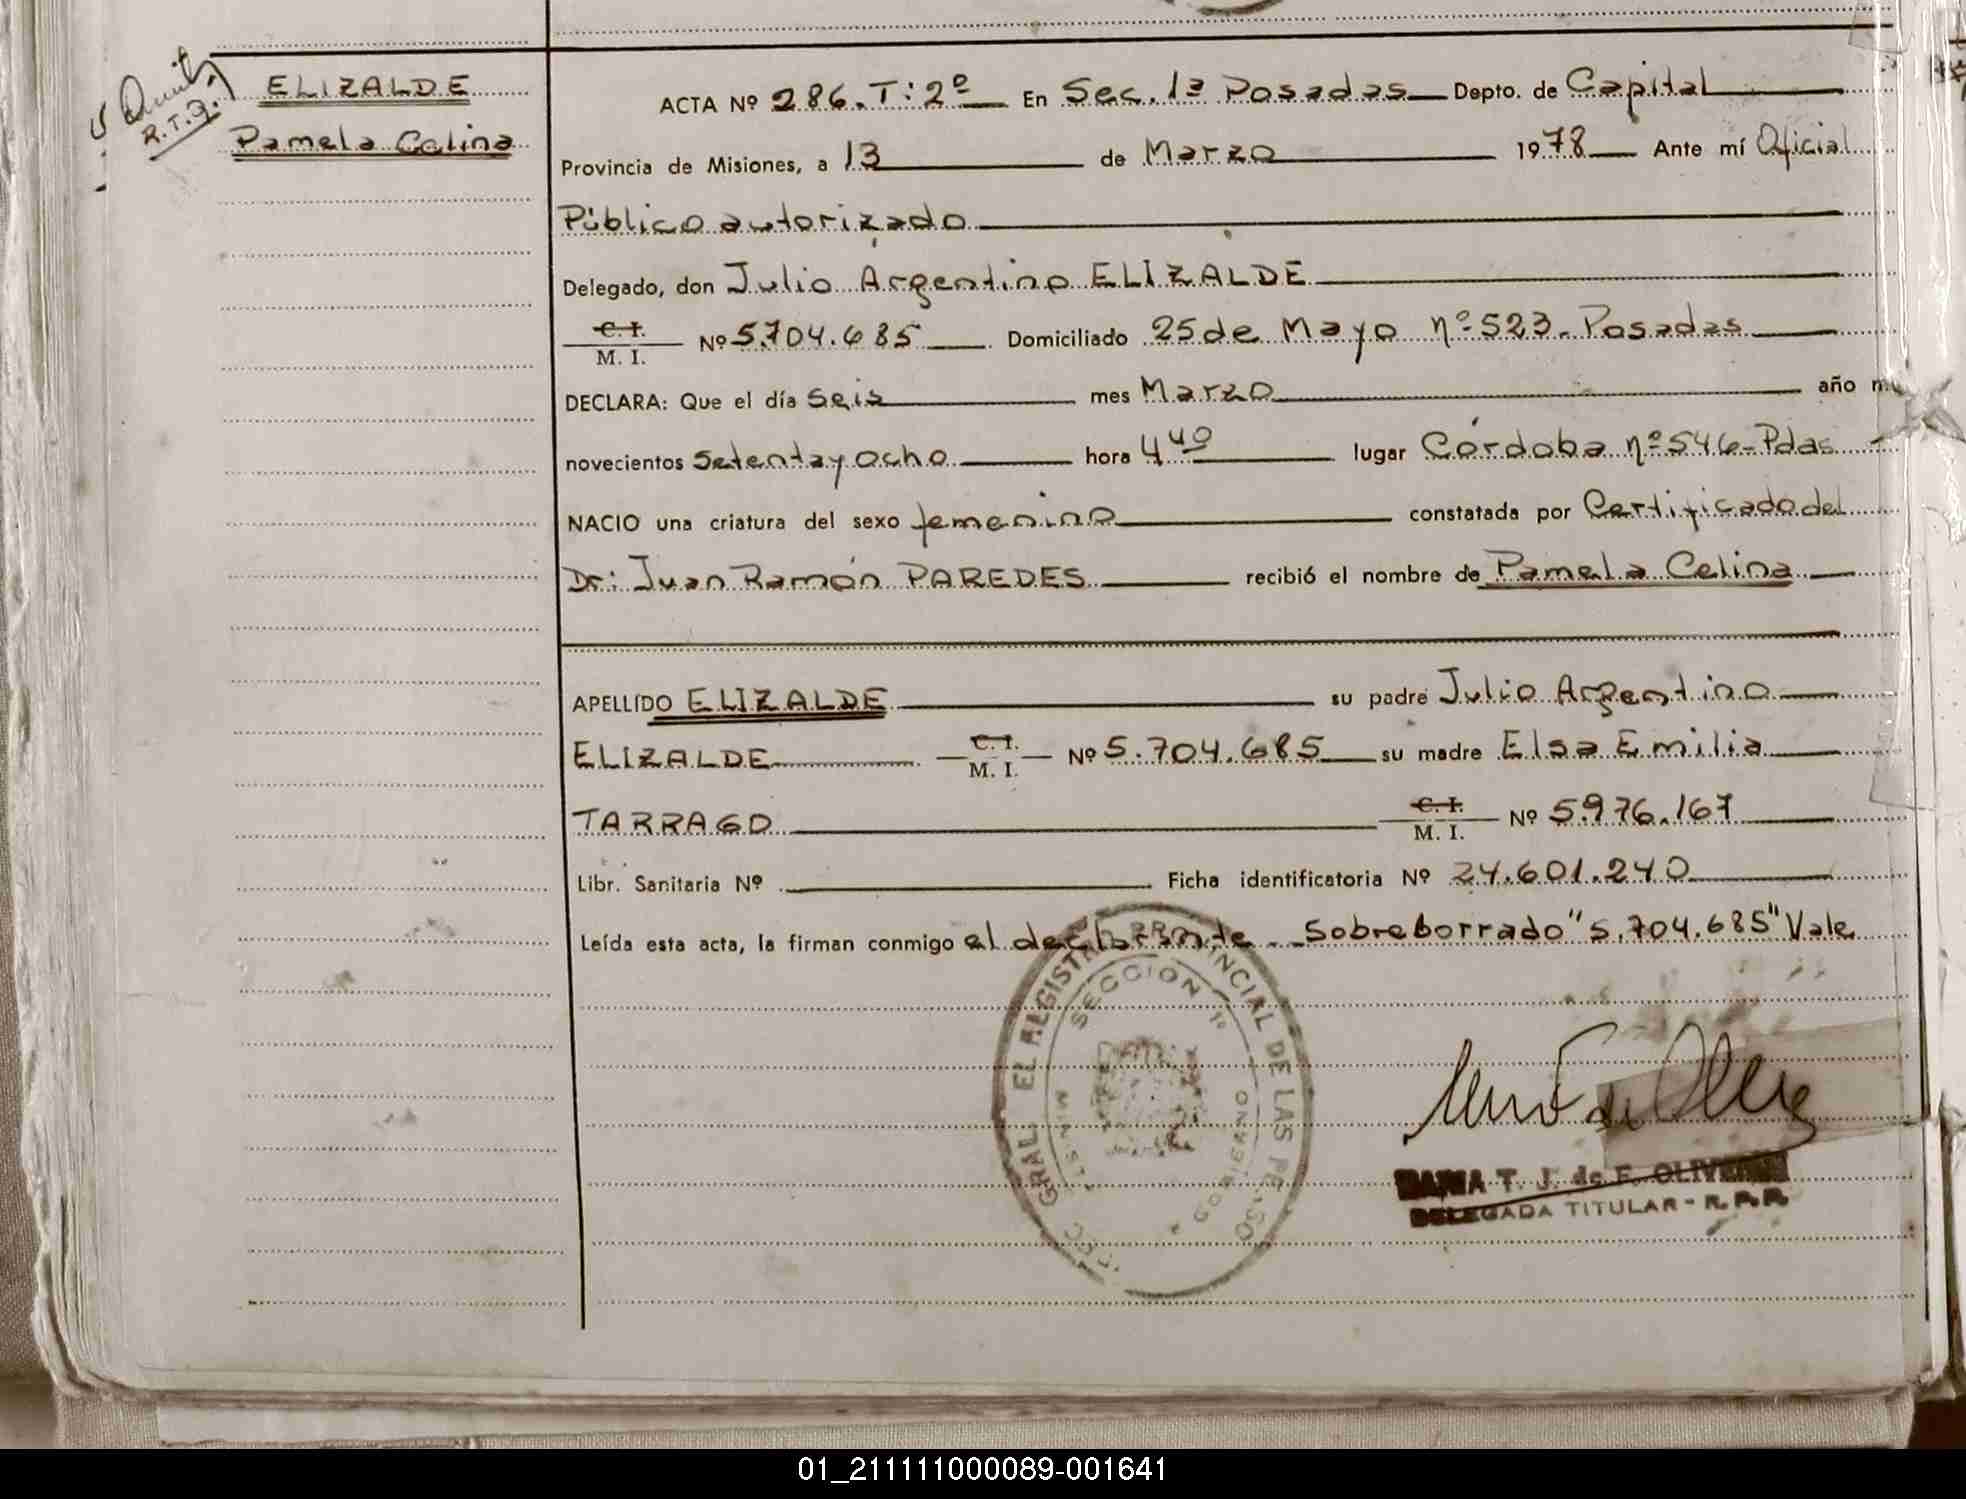 ELIZALDE
Pamela Celina
R.T.G.
ACTA Nº 286.T:2º En Sec. 1ª Posadas Depto. de Capital
Provincia de Misiones, a 13 de Marzo 1978 Ante mí Oficial
Público autorizado
Delegado, don Julio Argentino ELIZALDE
C. I.
M. I. Nº 5.704.685 Domiciliado 25 de Mayo nº 523. Posadas
DECLARA: Que el día seis mes Marzo año
novecientos setenta y ocho hora 4 40 lugar Córdoba nº 546-Pdas
NACIO una criatura del sexo femenino constatada por Certificado del
Dr: Juan Ramón PAREDES recibió el nombre de Pamela Celina
APELLIDO ELIZALDE su padre Julio Argentino
ELIZALDE C. I. M. I. Nº 5.704.685 su madre Elsa Emilia
TARRAGO C. I. M. I. Nº 5.976.167
Libr. Sanitaria Nº Ficha identificatoria Nº 24.601.240
Leída esta acta, la firman conmigo el declarante. Sobreborrado "5.704.685" Vale
GRAL. PROVINCIAL DE LAS
SECCION 1º
T. J. de F.
DELEGADA TITULAR - R.P.P.
01_211111000089-001641